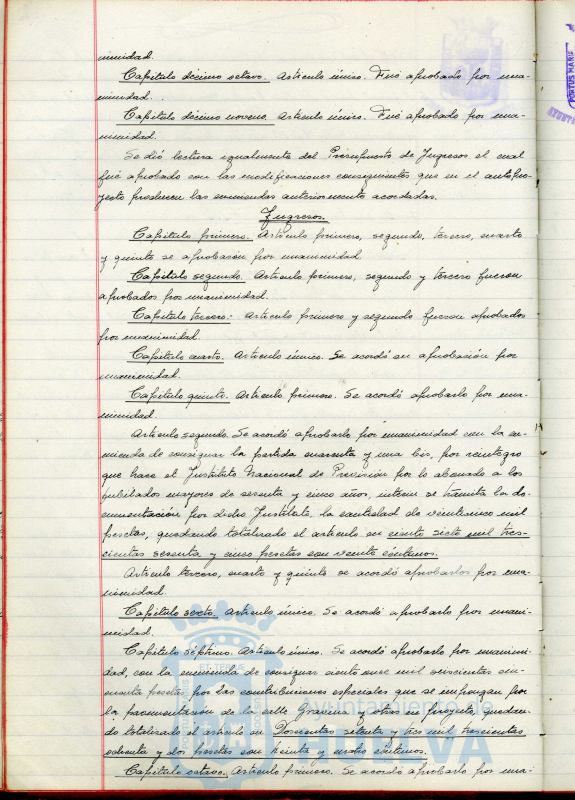 nimidad.
Capitulo décimo octavo. Articulo único. Fué aprobado por una-
nimidad.
Capitulo décimo noveno. Articulo único. Fué aprobado por una-
nimidad.
Se dió lectura igualmente del Presupuesto de Ingresos el cual
fué aprobado con las modificaciones consiguientes que en el antepro-
yecto producen las enmiendas anteriormente acordadas.
Ingresos.
Capitulo primero. Articulo primero, segundo, tercero, cuarto
y quinto se aprobaron por unanimidad
Capitulo segundo. Articulo primero, segundo y tercero fueron
aprobados por unanimidad.
Capitulo tercero: Articulo primero y segundo fueron aprobados
por unanimidad.
Capitulo cuarto. Articulo único. Se acordó su aprobación por
unanimidad.
Capitulo quinto. Articulo primero. Se acordó aprobarlo por una-
nimidad.
Articulo segundo. Se acordó aprobarlo por unanimidad con la en-
mienda de consignar la partida cuarenta y una bis, por reintegro
que hace el Instituto Nacional de Previsión por lo abonado a los
jubilados mayores de sesenta y cinco años, interin se tramita la do-
cumentación por dicho Instituto, la cantidad de veinticinco mil
pesetas, quedando totalizado el articulo en ciento siete mil tres-
cientas sesenta y cinco pesetas con veinte céntimos.
Articulo tercero, cuarto y quinto se acordó aprobarlos por una-
nimidad.
Capitulo sexto. Articulo único. Se acordó aprobarlo por unani-
midad.
Capitulo séptimo. Articulo único. Se acordó aprobarlo por unanimi-
dad, con la enmienda de consignar ciento once mil seiscientas cin-
cuenta pesetas por las contribuciones especiales que se impongan por
la pavimentación de la calle Gravina y otras en proyecto, quedan-
do totalizado el articulo en Doscientas setenta y tres mil trescientas
ochenta y dos pesetas con treinta y cuatro céntimos.
Capitulo octavo. Articulo primero. Se acordó aprobarlo por una-
ET TERRAE
Ayuntamiento de
HUELVA
PORTUS MARIS